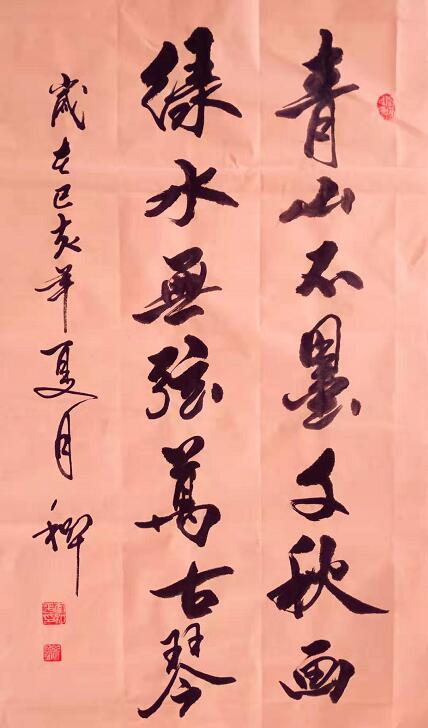 青山不墨千秋画
綠水無弦萬古琴
歲在己亥年夏月